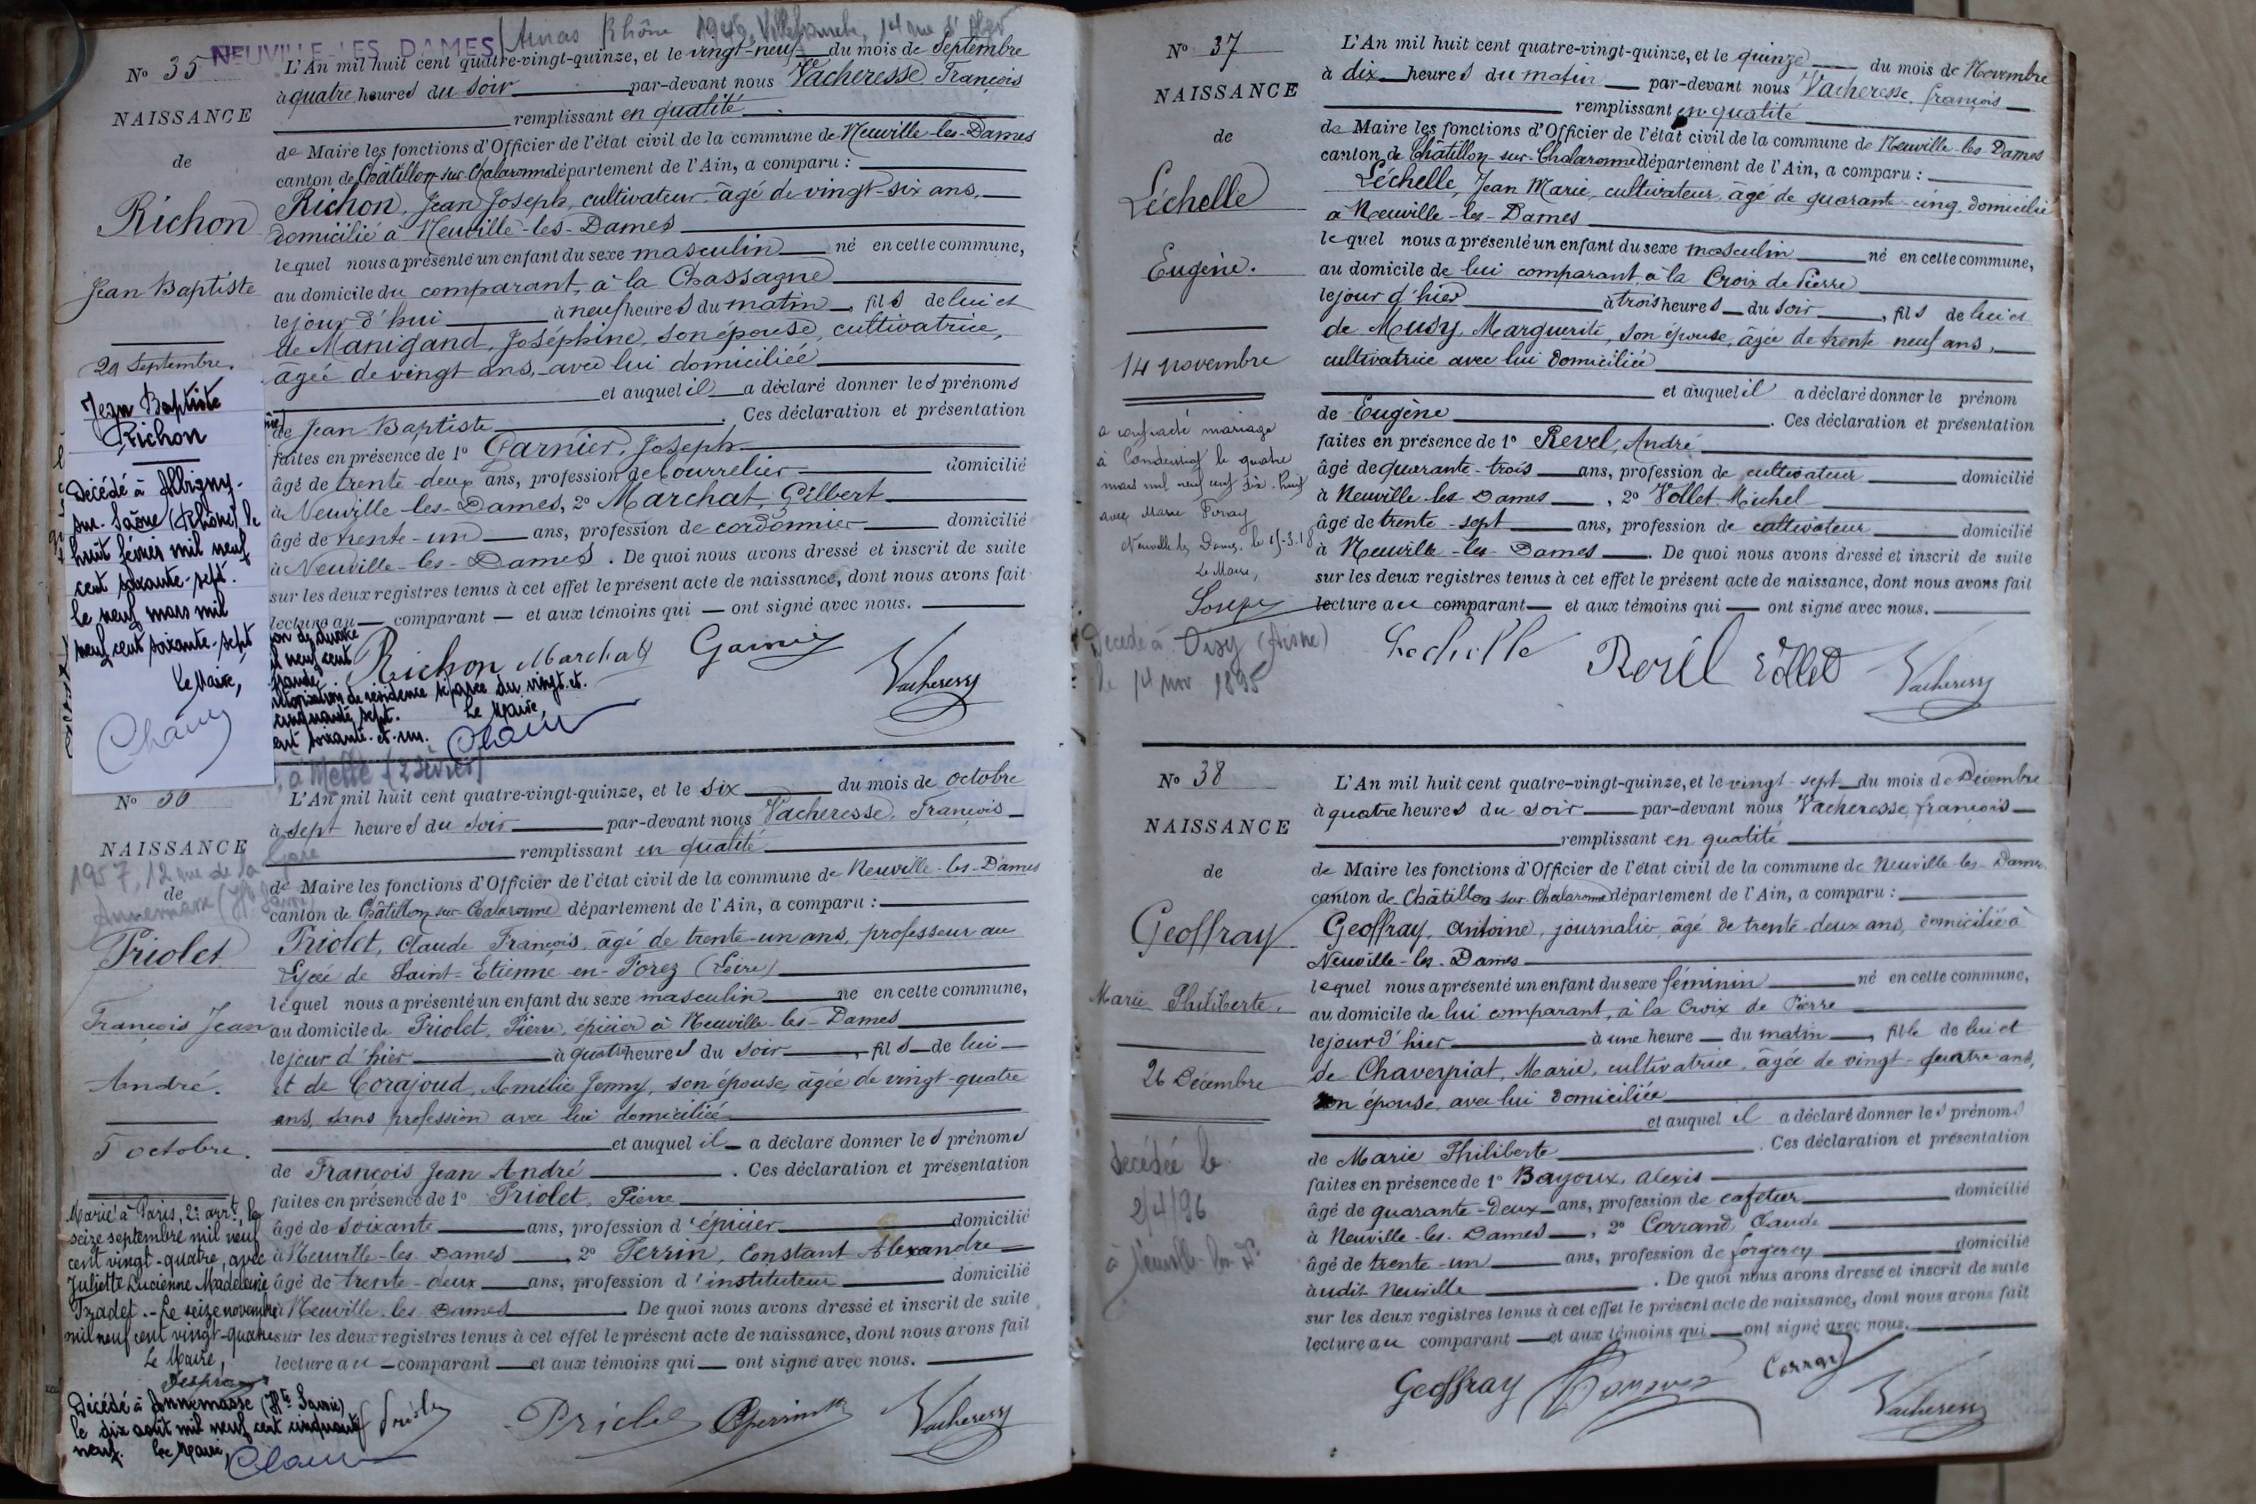 NEUVILLE-LES-DAMES
Arnas Rhône
No 35
NAISSANCE
de
Richon
Jean Baptiste
29 Septembre.
L'An mil huit cent quatre-vingt-quinze, et le vingt-neuf du mois de Septembre
à quatre heures du soir par-devant nous Vacheresse François
remplissant en qualité
de Maire les fonctions d'Officier de l'état civil de la commune de Neuville-les-Dames
canton de Châtillon-sur-Chalaronne département de l'Ain, a comparu :
Richon, Jean Joseph, cultivateur, âgé de vingt-six ans,
domicilié à Neuville-les-Dames
lequel nous a présenté un enfant du sexe masculin né en cette commune,
au domicile du comparant, à la Chassagne
le jour d'hui à neuf heures du matin, fils de lui et
de Manigand, Joséphine, son épouse, cultivatrice,
âgée de vingt ans, avec lui domiciliée
et auquel il a déclaré donner les prénoms
de Jean Baptiste. Ces déclaration et présentation
faites en présence de 1o Garnier, Joseph
âgé de trente-deux ans, profession de bourrelier domicilié
à Neuville-les-Dames, 2o Marchat, Gilbert
âgé de trente-un ans, profession de cordonnier domicilié
à Neuville-les-Dames. De quoi nous avons dressé et inscrit de suite
sur les deux registres tenus à cet effet le présent acte de naissance, dont nous avons fait
lecture au comparant et aux témoins qui ont signé avec nous.
Richon Marchat Garnier
Vacheresse
Jean Baptiste
Richon
Décédé à Albigny-
sur-Saône (Rhône) le
huit février mil neuf
cent soixante-sept.
le neuf mars mil
neuf cent soixante-sept
Le Maire,
neuf cent
autorisation de résidence séparée du vingt-et-
cinquante sept. Le Maire,
cent soixante-et-un.
à Melle (2 Sèvres)
NAISSANCE
de
1957, 12 rue de la Gare
Annemasse (Hte Savoie)
Priolet
François Jean
André.
5 octobre.
L'An mil huit cent quatre-vingt-quinze, et le six du mois de octobre
à sept heures du soir par-devant nous Vacheresse, François
remplissant en qualité
de Maire les fonctions d'Officier de l'état civil de la commune de Neuville-les-Dames
canton de Châtillon-sur-Chalaronne département de l'Ain, a comparu :
Priolet, Claude François, âgé de trente-un ans, professeur au
Lycée de Saint-Etienne-en-Forez (Loire)
lequel nous a présenté un enfant du sexe masculin né en cette commune,
au domicile de Priolet, Pierre, épicier à Neuville-les-Dames
le jour d'hier à quatre heures du soir, fils de lui
et de Corajoud, Amélie Jenny, son épouse, âgée de vingt-quatre
ans, sans profession avec lui domiciliée
et auquel il a déclaré donner les prénoms
de François Jean André. Ces déclaration et présentation
faites en présence de 1o Priolet, Pierre
âgé de soixante ans, profession d'épicier domicilié
à Neuville-les-Dames, 2o Perrin, Constant Alexandre
âgé de trente-deux ans, profession d'instituteur domicilié
à Neuville-les-Dames. De quoi nous avons dressé et inscrit de suite
sur les deux registres tenus à cet effet le présent acte de naissance, dont nous avons fait
lecture au comparant et aux témoins qui ont signé avec nous.
Marié à Paris, 2e arrt, le
seize septembre mil neuf
cent vingt-quatre, avec
Juliette Lucienne Madeleine
Tradet. - Le seize novembre
mil neuf cent vingt-quatre
Le Maire,
Décédé à Annemasse (Hte Savoie)
le dix août mil neuf cent cinquante
neuf. Le Maire,
Vacheresse
No 37
NAISSANCE
de
Léchelle
Eugène.
14 novembre
L'An mil huit cent quatre-vingt-quinze, et le quinze du mois de Novembre
à dix heures du matin par-devant nous Vacheresse, françois
remplissant en qualité
de Maire les fonctions d'Officier de l'état civil de la commune de Neuville-les-Dames
canton de Châtillon-sur-Chalaronne département de l'Ain, a comparu :
Léchelle, Jean Marie, cultivateur, âgé de quarante-cinq, domicilié
à Neuville-les-Dames
lequel nous a présenté un enfant du sexe masculin né en cette commune,
au domicile de lui comparant, à la Croix de Pierre
le jour d'hier à trois heures du soir, fils de lui et
de Musy, Marguerite, son épouse, âgée de trente-neuf ans,
cultivatrice avec lui domiciliée
et auquel il a déclaré donner le prénom
de Eugène. Ces déclaration et présentation
faites en présence de 1o Revel, André
âgé de quarante-trois ans, profession de cultivateur domicilié
à Neuville-les-Dames, 2o Vollet Michel
âgé de trente-sept ans, profession de cultivateur domicilié
à Neuville-les-Dames. De quoi nous avons dressé et inscrit de suite
sur les deux registres tenus à cet effet le présent acte de naissance, dont nous avons fait
lecture au comparant et aux témoins qui ont signé avec nous.
a contracté mariage
à Condeissiat le quatre
mars mil neuf cent dix-huit
avec Marie
Neuville les Dames, le 15-3-18
Le Maire,
Décédé à (Aisne)
le 14 nov 1895
Lechelle Revel Vollet Vacheresse
No 38
NAISSANCE
de
Geoffray
Marie Philiberte.
26 Décembre
L'An mil huit cent quatre-vingt-quinze, et le vingt-sept du mois de Décembre
à quatre heures du soir par-devant nous Vacheresse, françois
remplissant en qualité
de Maire les fonctions d'Officier de l'état civil de la commune de Neuville-les-Dames
canton de Châtillon-sur-Chalaronne département de l'Ain, a comparu :
Geoffray, Antoine, journalier, âgé de trente-deux ans, domicilié à
Neuville-les-Dames
lequel nous a présenté un enfant du sexe féminin né en cette commune,
au domicile de lui comparant, à la Croix de Pierre
le jour d'hier à une heure du matin, fille de lui et
de Chaverpiat, Marie, cultivatrice, âgée de vingt-quatre ans,
son épouse, avec lui domiciliée
et auquel il a déclaré donner les prénoms
de Marie Philiberte. Ces déclaration et présentation
faites en présence de 1o Bayoux, Alexis
âgé de quarante-deux ans, profession de cafetier domicilié
à Neuville-les-Dames, 2o Corrand, Claude
âgé de trente-un ans, profession de forgeron domicilié
audit Neuville. De quoi nous avons dressé et inscrit de suite
sur les deux registres tenus à cet effet le présent acte de naissance, dont nous avons fait
lecture au comparant et aux témoins qui ont signé avec nous.
Décédée le
2/4/96
à Neuville-les-D
Geoffray Corrand
Vacheresse